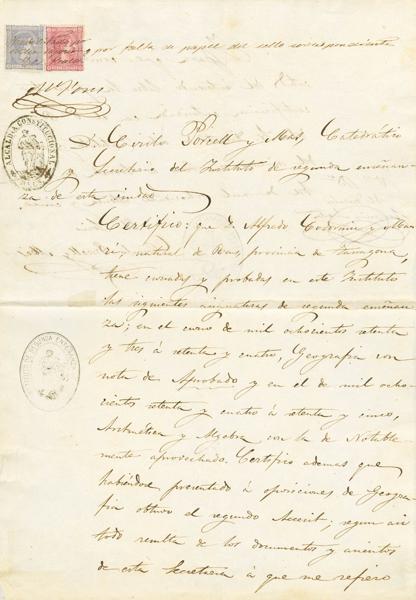 por falta de papel del sello correspondiente
ALCALDIA CONSTITUCIONAL
D. Cirilo Porcell y Mas, Catedratico
y Secretario del Instituto de segunda enseñan-
za de esta ciudad
Certifico: que D. Alfredo
natural de Reus, provincia de Tarragona,
tiene cursadas y probadas en este Instituto
las siguientes asignaturas de segunda enseñan-
za; en el curso de mil ochocientos setenta
y tres á setenta y cuatro, Geografia con
nota de Aprobado y en el de mil ocho-
cientos setenta y cuatro á setenta y cinco,
Aritmética y Algebra con la de Notable
mente aprovechado. Certifico ademas que
habiéndose presentado á oposiciones de Geogra-
fia obtuvo el segundo Accesit; segun asi
todo resulta de los documentos y asientos
de esta Secretaria á que me refiero